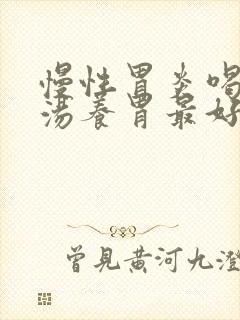 慢性胃炎喝
汤养胃最好
曾见黄河九澄